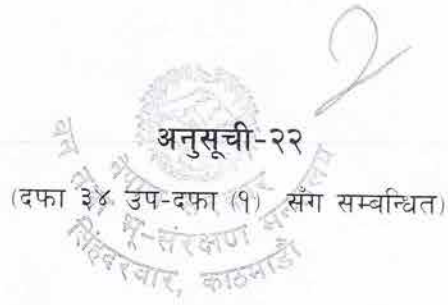 अनुसूची-२२
(दफा ३४ उप-दफा (१) सँग सम्बन्धित)
नेपाल सरकार
वन तथा भू-संरक्षण मन्त्रालय
सिंहदरवार, काठमाडौं